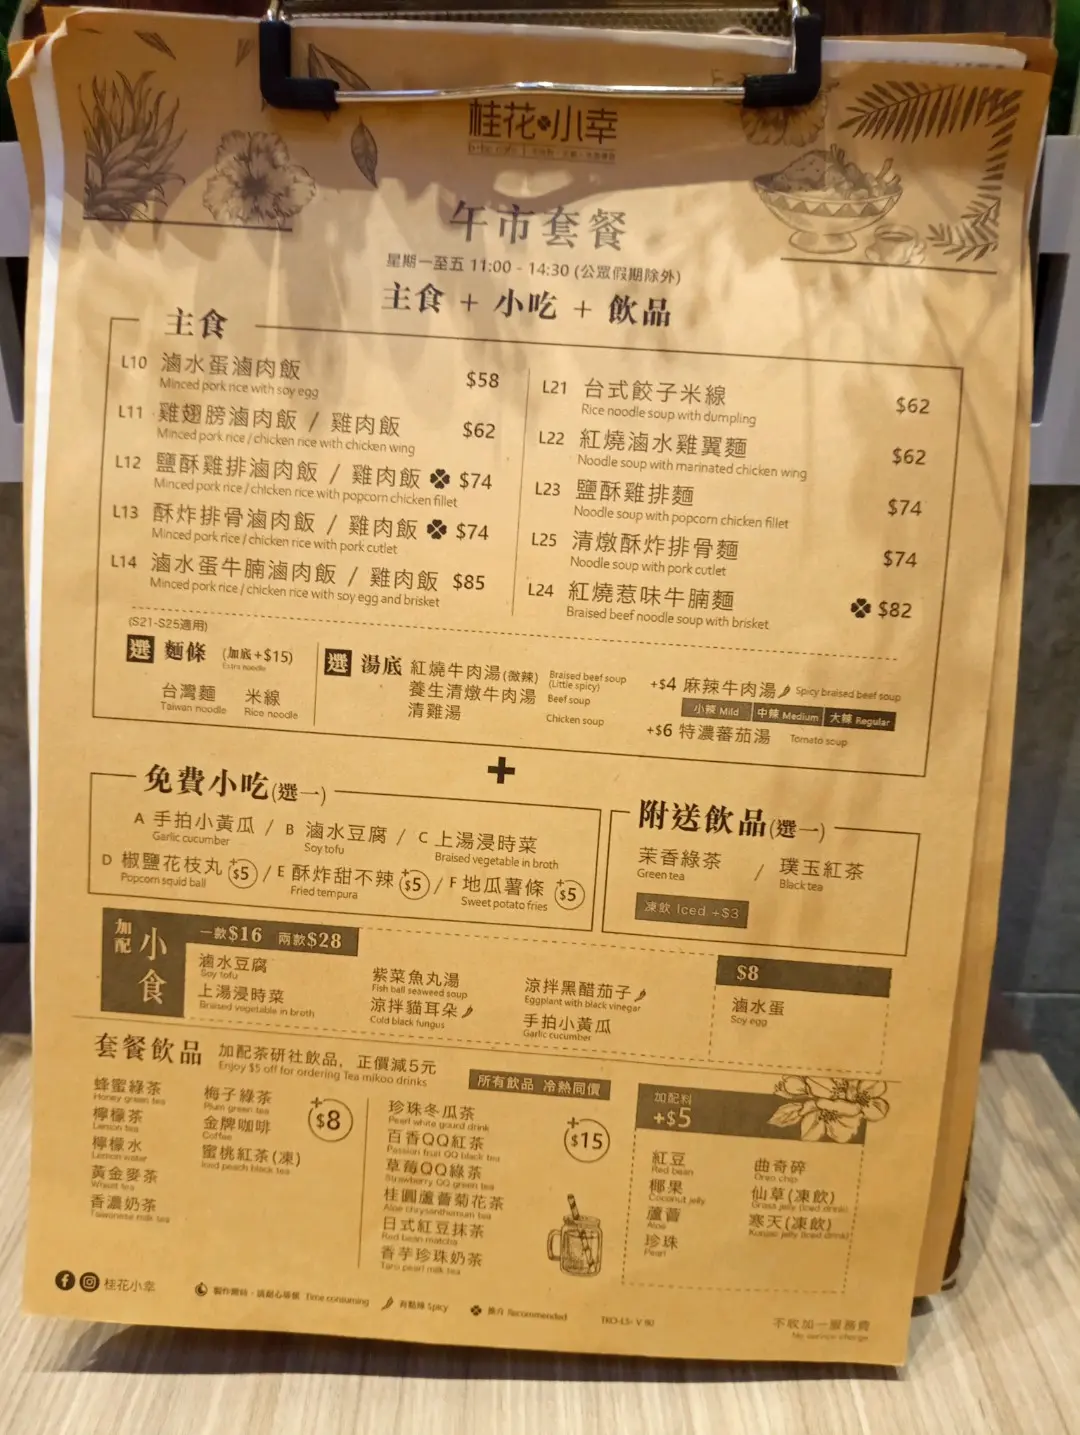 桂花小幸
午市套餐
星期一至五 11:00 - 14:30 (公眾假期除外)
主食 + 小吃 + 飲品
主食
L10 滷水蛋滷肉飯 $58
Minced pork rice with soy egg
L11 雞翅膀滷肉飯 / 雞肉飯 $62
Minced pork rice / chicken rice with chicken wing
L12 鹽酥雞排滷肉飯 / 雞肉飯 $74
Minced pork rice / chicken rice with popcorn chicken fillet
L13 酥炸排骨滷肉飯 / 雞肉飯 $74
Minced pork rice / chicken rice with pork cutlet
L14 滷水蛋牛腩滷肉飯 / 雞肉飯 $85
Minced pork rice / chicken rice with soy egg and brisket
L21 台式餃子米線 $62
Rice noodle soup with dumpling
L22 紅燒滷水雞翼麵 $62
Noodle soup with marinated chicken wing
L23 鹽酥雞排麵 $74
Noodle soup with popcorn chicken fillet
L25 清燉酥炸排骨麵 $74
Noodle soup with pork cutlet
L24 紅燒惹味牛腩麵 $82
Braised beef noodle soup with brisket
(S21-S25適用)
選 麵條 (加底+$15)
Extra noodle
台灣麵 米線
Taiwan noodle Rice noodle
選 湯底 紅燒牛肉湯(微辣) Braised beef soup (Little spicy)
養生清燉牛肉湯 Beef soup
清雞湯 Chicken soup
+$4 麻辣牛肉湯 Spicy braised beef soup
小辣 Mild 中辣 Medium 大辣 Regular
+$6 特濃蕃茄湯 Tomato soup
+
免費小吃(選一)
A 手拍小黃瓜 / B 滷水豆腐 / C 上湯浸時菜
Garlic cucumber Soy tofu Braised vegetable in broth
D 椒鹽花枝丸 +$5 / E 酥炸甜不辣 +$5 / F 地瓜薯條 +$5
Popcorn squid ball Fried tempura Sweet potato fries
附送飲品(選一)
茉香綠茶 / 璞玉紅茶
Green tea Black tea
凍飲 Iced +$3
加配 小食
一款$16 兩款$28
滷水豆腐 紫菜魚丸湯 涼拌黑醋茄子
Soy tofu Fish ball seaweed soup Eggplant with black vinegar
上湯浸時菜 涼拌貓耳朵 手拍小黃瓜
Braised vegetable in broth Cold black fungus Garlic cucumber
$8
滷水蛋
Soy egg
套餐飲品 加配茶研社飲品, 正價減5元
Enjoy $5 off for ordering Tea mikoo drinks
所有飲品 冷熱同價
蜂蜜綠茶
Honey green tea
檸檬茶
Lemon tea
檸檬水
Lemon water
黃金麥茶
Wheat tea
香濃奶茶
Taiwanese milk tea
梅子綠茶
Plum green tea
金牌咖啡
Coffee
蜜桃紅茶(凍)
Iced peach black tea
+$8
珍珠冬瓜茶
Pearl white gourd drink
百香QQ紅茶
Passion fruit QQ black tea
草莓QQ綠茶
Strawberry QQ green tea
桂圓蘆薈菊花茶
Aloe chrysanthemum tea
日式紅豆抹茶
Red bean matcha
香芋珍珠奶茶
Taro pearl milk tea
+$15
加配料
+$5
紅豆
Red bean
椰果
Coconut jelly
蘆薈
Aloe
珍珠
Pearl
曲奇碎
Oreo chip
仙草(凍飲)
Grass jelly (Iced drink)
寒天(凍飲)
Konjac jelly (Iced drink)
桂花小幸
Time consuming
有點辣 Spicy
推介 Recommended
不收加一服務費
No service charge